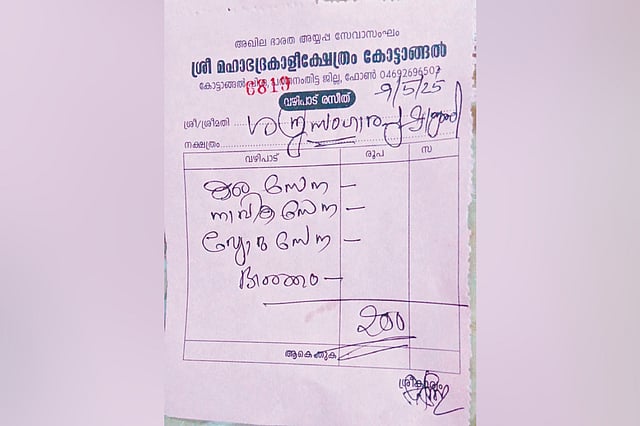 അഖില ഭാരത അയ്യപ്പ സേവാസംഘം
ശ്രീ മഹാഭദ്രകാളീക്ഷേത്രം കോട്ടാങ്ങൽ
കോട്ടാങ്ങൽ പി.ഒ., പത്തനംതിട്ട ജില്ല, ഫോൺ 04692696507
0819
വഴിപാട് രസീത് 9/5/25
ശ്രീ/ശ്രീമതി ശത്രുസംഹാരപുഷ്പാഞ്ജലി
നക്ഷത്രം
വഴിപാട് രൂപ സ
കര സേന —
നാവിക സേന —
വ്യോമ സേന —
ഭാരതം —
200
ആകെ തുക
ശ്രീകാര്യം